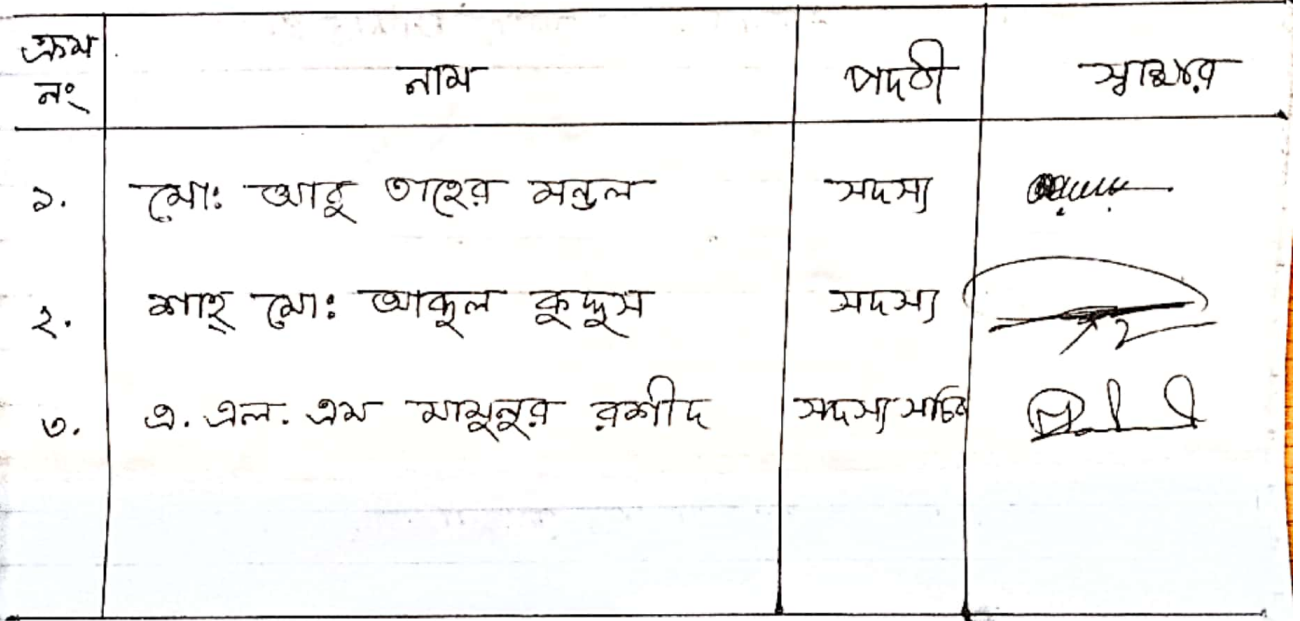 ক্রম নং নাম পদবী স্বাক্ষর
১. মোঃ আবু তাহের মন্ডল সদস্য
২. শাহ্ মোঃ আব্দুল কুদ্দুস সদস্য
৩. এ. এল. এম মামুনুর রশীদ সদস্য সচিব